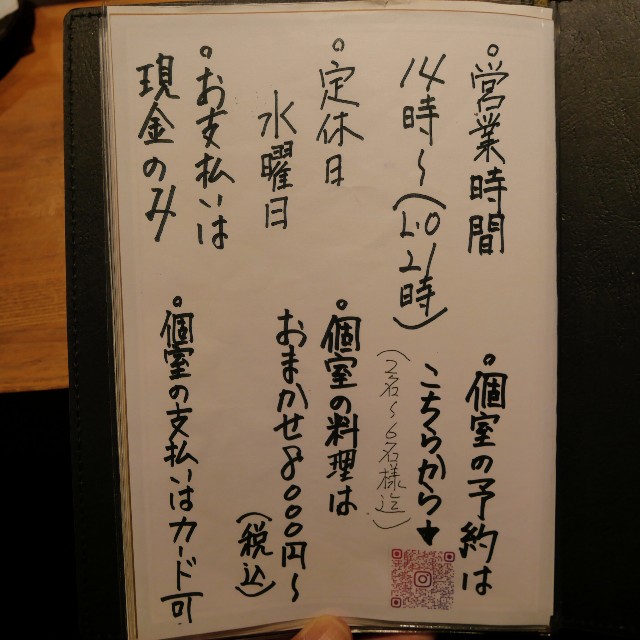 ・営業時間
14時〜(L.O 21時)
・定休日
水曜日
・お支払いは
現金のみ
・個室の予約は
こちらから↓
(2名〜6名様迄)
・個室の料理は
おまかせ8000円〜
(税込)
・個室の支払いはカード可